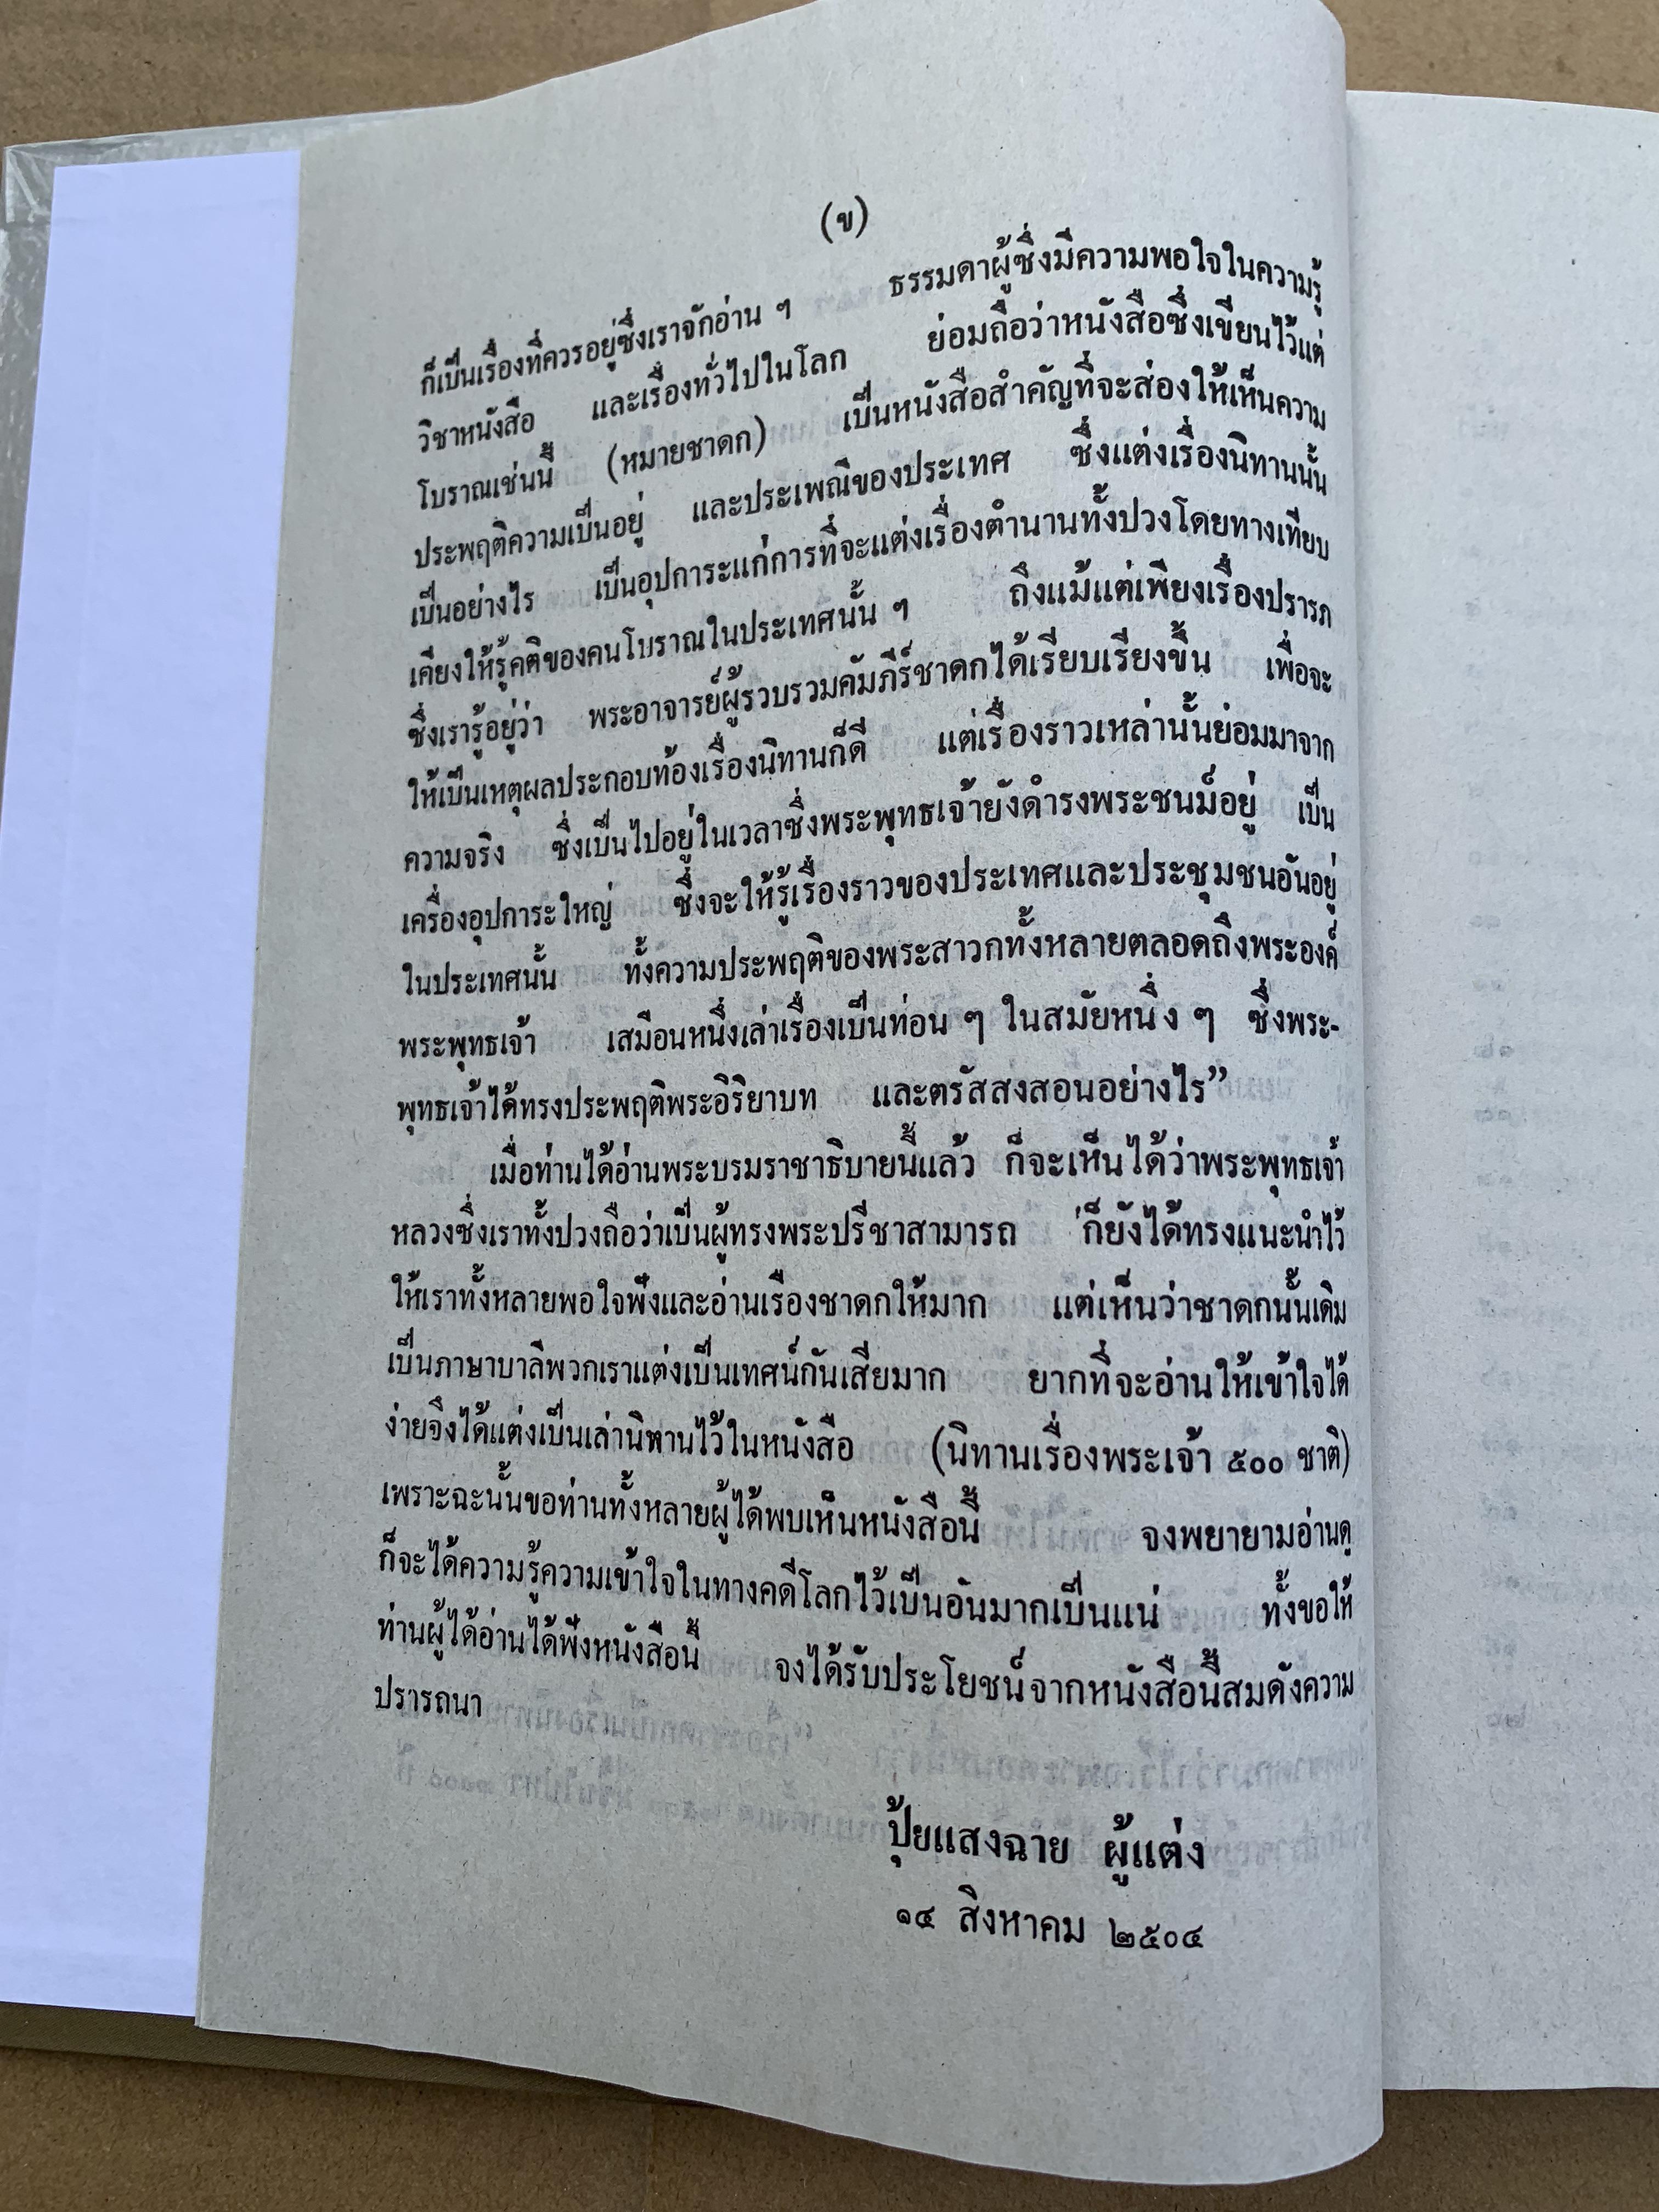 (ข)
ก็เป็นเรื่องที่ควรอยู่ซึ่งเราจักอ่าน ๆ ธรรมดาผู้ซึ่งมีความพอใจในความรู้
วิชาหนังสือ และเรื่องทั่วไปในโลก ย่อมถือว่าหนังสือซึ่งเขียนไว้แต่
โบราณเช่นนี้ (หมายชาดก) เป็นหนังสือสำคัญที่จะส่องให้เห็นความ
ประพฤติความเป็นอยู่ และประเพณีของประเทศ ซึ่งแต่งเรื่องนิทานนั้น
เป็นอย่างไร เป็นอุปการะแก่การที่จะแต่งเรื่องตำนานทั้งปวงโดยทางเทียบ
เคียงให้รู้คติของคนโบราณในประเทศนั้น ๆ ถึงแม้แต่เพียงเรื่องปรารภ
ซึ่งเรารู้อยู่ว่า พระอาจารย์ผู้รวบรวมคัมภีร์ชาดกได้เรียบเรียงขึ้น เพื่อจะ
ให้เป็นเหตุผลประกอบท้องเรื่องนิทานก็ดี แต่เรื่องราวเหล่านั้นย่อมมาจาก
ความจริง ซึ่งเป็นไปอยู่ในเวลาซึ่งพระพุทธเจ้ายังดำรงพระชนม์อยู่ เป็น
เครื่องอุปการะใหญ่ ซึ่งจะให้รู้เรื่องราวของประเทศและประชุมชนอันอยู่
ในประเทศนั้น ทั้งความประพฤติของพระสาวกทั้งหลายตลอดถึงพระองค์
พระพุทธเจ้า เสมือนหนึ่งเล่าเรื่องเป็นท่อน ๆ ในสมัยหนึ่ง ๆ ซึ่งพระ-
พุทธเจ้าได้ทรงประพฤติพระอิริยาบท และตรัสสงสอนอย่างไร”
เมื่อท่านได้อ่านพระบรมราชาธิบายนี้แล้ว ก็จะเห็นได้ว่าพระพุทธเจ้า
หลวงซึ่งเราทั้งปวงถือว่าเป็นผู้ทรงพระปรีชาสามารถ ก็ยังได้ทรงแนะนำไว้
ให้เราทั้งหลายพอใจฟังและอ่านเรื่องชาดกให้มาก แต่เห็นว่าชาดกนั้นเดิม
เป็นภาษาบาลีพวกเราแต่งเป็นเทศน์กันเสียมาก ยากที่จะอ่านให้เข้าใจได้
ง่ายจึงได้แต่งเป็นเล่านิทานไว้ในหนังสือ (นิทานเรื่องพระเจ้า ๕๐๐ ชาติ)
เพราะฉะนั้นขอท่านทั้งหลายผู้ได้พบเห็นหนังสือนี้ จงพยายามอ่านดู
ก็จะได้ความรู้ความเข้าใจในทางคดีโลกไว้เป็นอันมากเป็นแน่ ทั้งขอให้
ท่านผู้ได้อ่านได้ฟังหนังสือนี้ จงได้รับประโยชน์จากหนังสือนี้สมดังความ
ปรารถนา
ปุ้ยแสงฉาย ผู้แต่ง
๑๔ สิงหาคม ๒๕๐๔